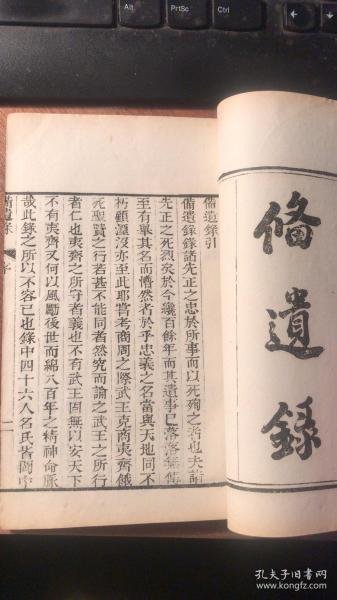 備遺錄
備遺錄引
備遺錄錄諸先正之忠於所事而以死殉之者也夫諸
先正之死烈矣於今纔百餘年而其遺事已落落無傳
至有舉其名而懵然者於乎忠義之名當與天地同不
朽顧湮沒亦至此耶嘗考商周之際武王克商夷齊餓
死聖賢之行若甚不能同者然究而論之武王之所行
者仁也夷齊之所守者義也不有武王固無以安天下
不有夷齊又何以風勵後世而綿八百年之精神命脈
哉此錄之所以不容已也錄中四十六人名氏皆聞
備遺錄
序
一
Alt
PrtSc
Ctrl
孔夫子旧书网